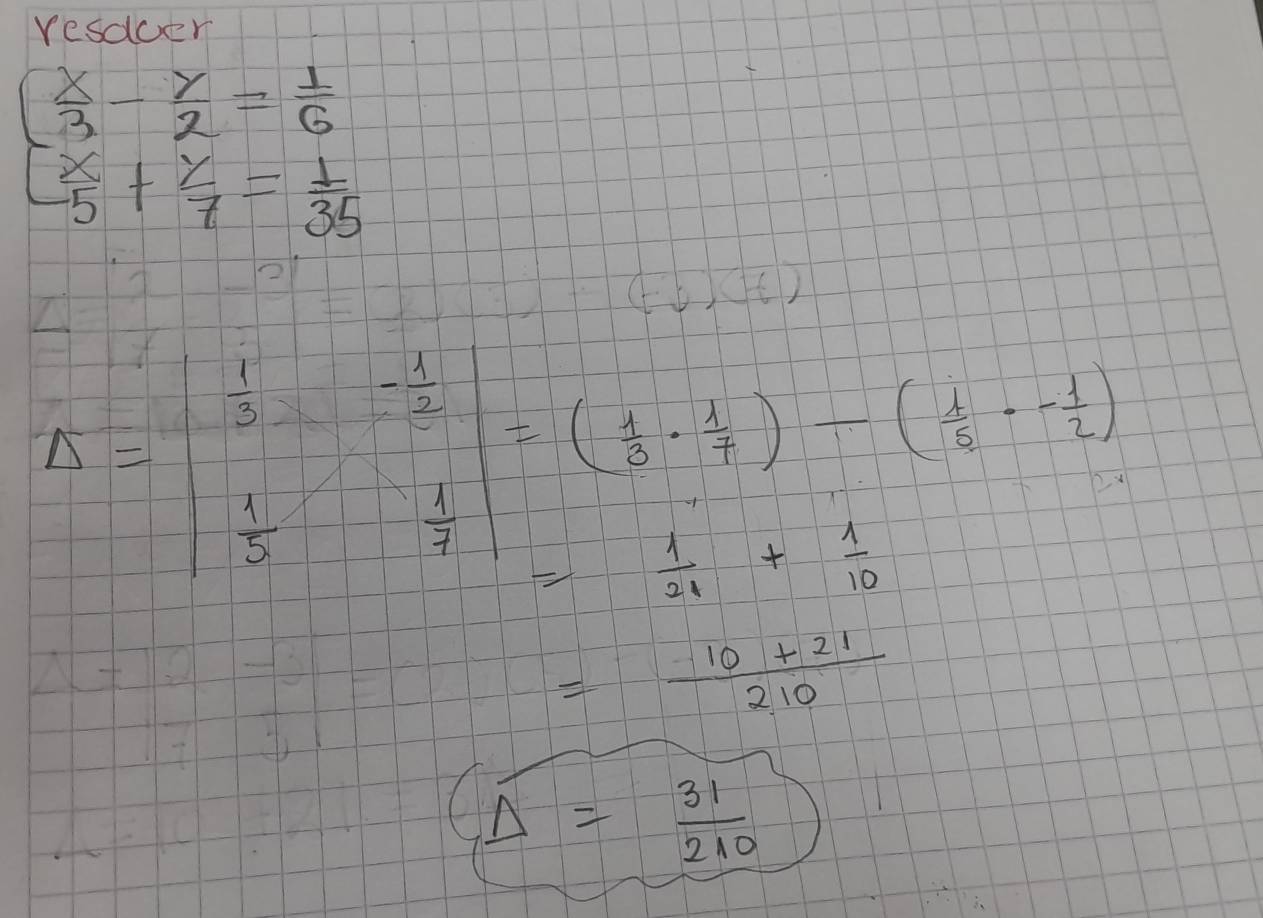 resolver
x/3 - y/2 = 1/6
x/5 + y/7 = 1/35
Δ = | 1/3 -1/2 | = (1/3 · 1/7) - (1/5 · -1/2)
| 1/5 1/7 |
= 1/21 + 1/10
= 10 + 21 / 210
Δ = 31/210